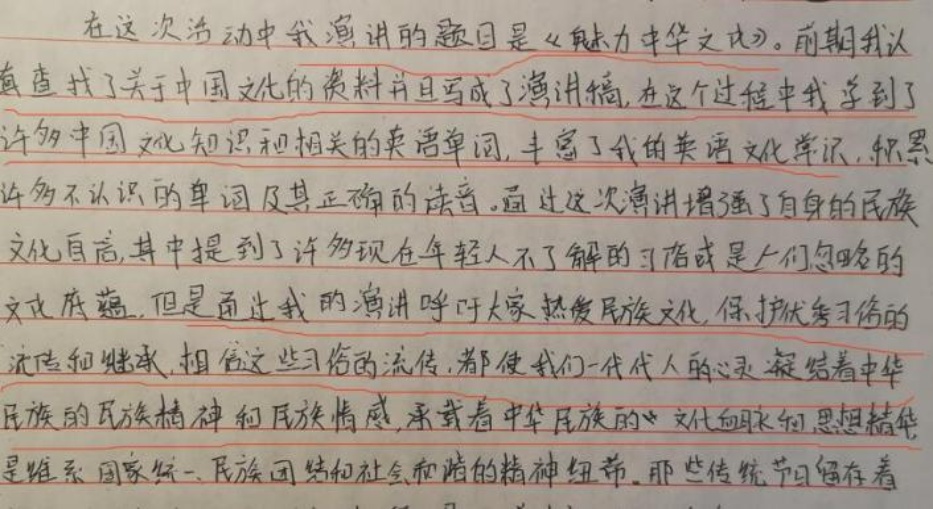 在这次活动中我演讲的题目是《魅力中华文化》。前期我认
真查找了关于中国文化的资料并且写成了演讲稿,在这个过程中我学到了
许多中国文化知识和相关的英语单词,丰富了我的英语文化常识,积累
许多不认识的单词及其正确的读音。通过这次演讲增强了自身的民族
文化自信,其中提到了许多现在年轻人不了解的习俗或是人们忽略的
文化底蕴,但是通过我的演讲呼吁大家热爱民族文化,保护优秀习俗的
流传和继承,相信这些习俗的流传,都使我们一代代人的心灵凝结着中华
民族的民族精神和民族情感,承载着中华民族的“文化血脉和思想精华
是维系国家统一、民族团结和社会和谐的精神纽带。那些传统节日留存着